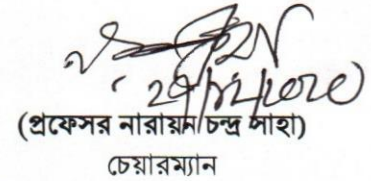 (প্রফেসর নারায়ন চন্দ্র সাহা)
চেয়ারম্যান